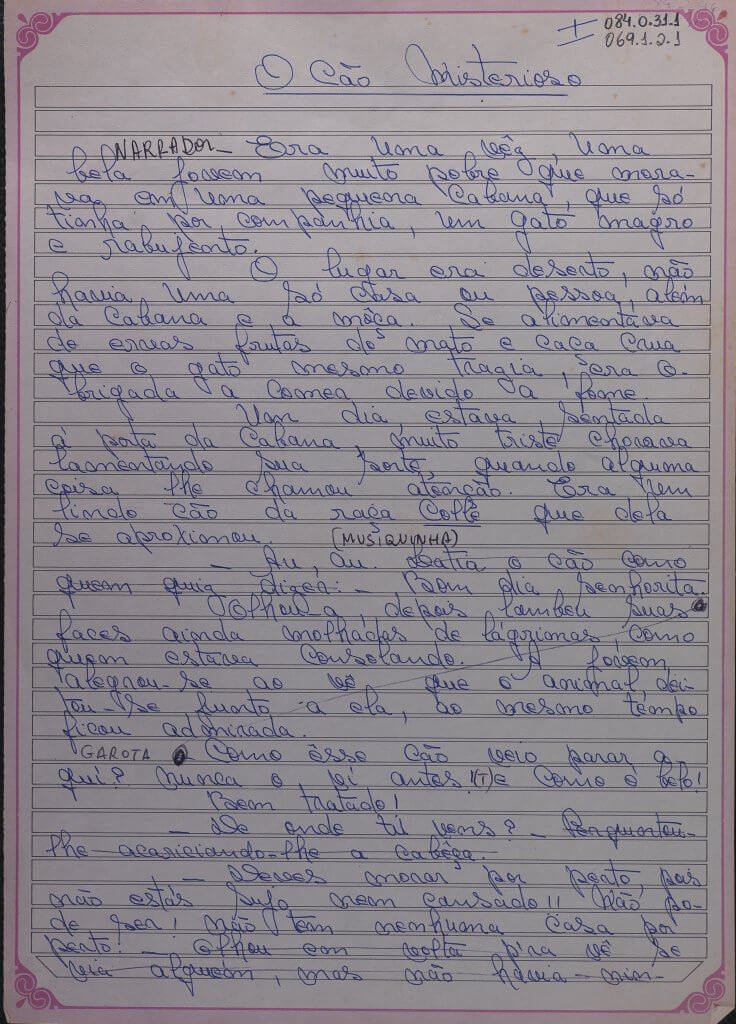 084.0.31.1
069.1.2.1
O Cão Misterioso
NARRADOR - Era uma vêz, uma
bela jovem muito pobre que mora-
va em uma pequena cabana, que só
tinha por companhia, um gato magro
e rabujento.
O lugar era deserto, não
havia uma só casa ou pessoa, além
da cabana e a môça. Se alimentava
de ervas frutas do mato e caça crua
que o gato mesmo trazia, era o-
brigada a comer devido a fome.
Um dia estava sentada
á porta da cabana, muito triste chorava
lamentando sua sorte, quando alguma
coisa lhe chamou atenção. Era um
lindo cão da raça Collê que dela
se aproximou. (MUSIQUINHA)
- Au, au. Latia o cão como
quem quiz dizer: - Bom dia senhorita.
Olhou-a, depois lambeu suas
faces ainda molhadas de lágrimas, como
quem estava consolando. A jovem,
alegrou-se ao vê que o animal dei-
tou-se junto a ela, ao mesmo tempo
ficou admirada.
GAROTA Como êsse cão veio parar a-
qui? Nunca o vi antes! (T) E como é belo!
Bem tratado!
- De onde tú vens? - Perguntou-
lhe acariciando-lhe a cabêça.
- Deves morar por perto, pois
não estás sujo nem cansado!! Não po-
de ser! Não tem nenhuma casa por
perto! - Olhou em volta p'ra vê se
via alguém, mas não havia nin-